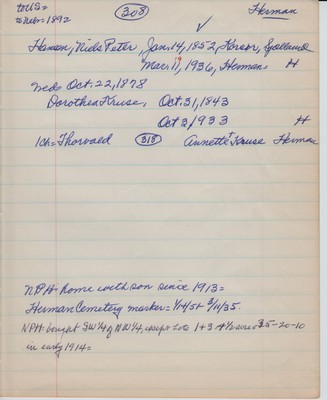 to US=
to Neb= 1892
308
Herman
Hansen, Niels Peter, Jan. 14, 1852, Korsor, Sjelland
Mar. 11, 1936, Herman= H
Wed= Oct. 22, 1878
Dorothea Kruse, Oct. 31, 1843
Oct 2, 1933 H
1ch= Thorvald 318 Annette Kruse Herman
NPH home with son since 1913=
Herman Cemetery marker= 1/14/51+ 3/11/35.
NPH bought SW 1/4 of NW 1/4, except Lots 1+3 35-20-10
in early 1914=